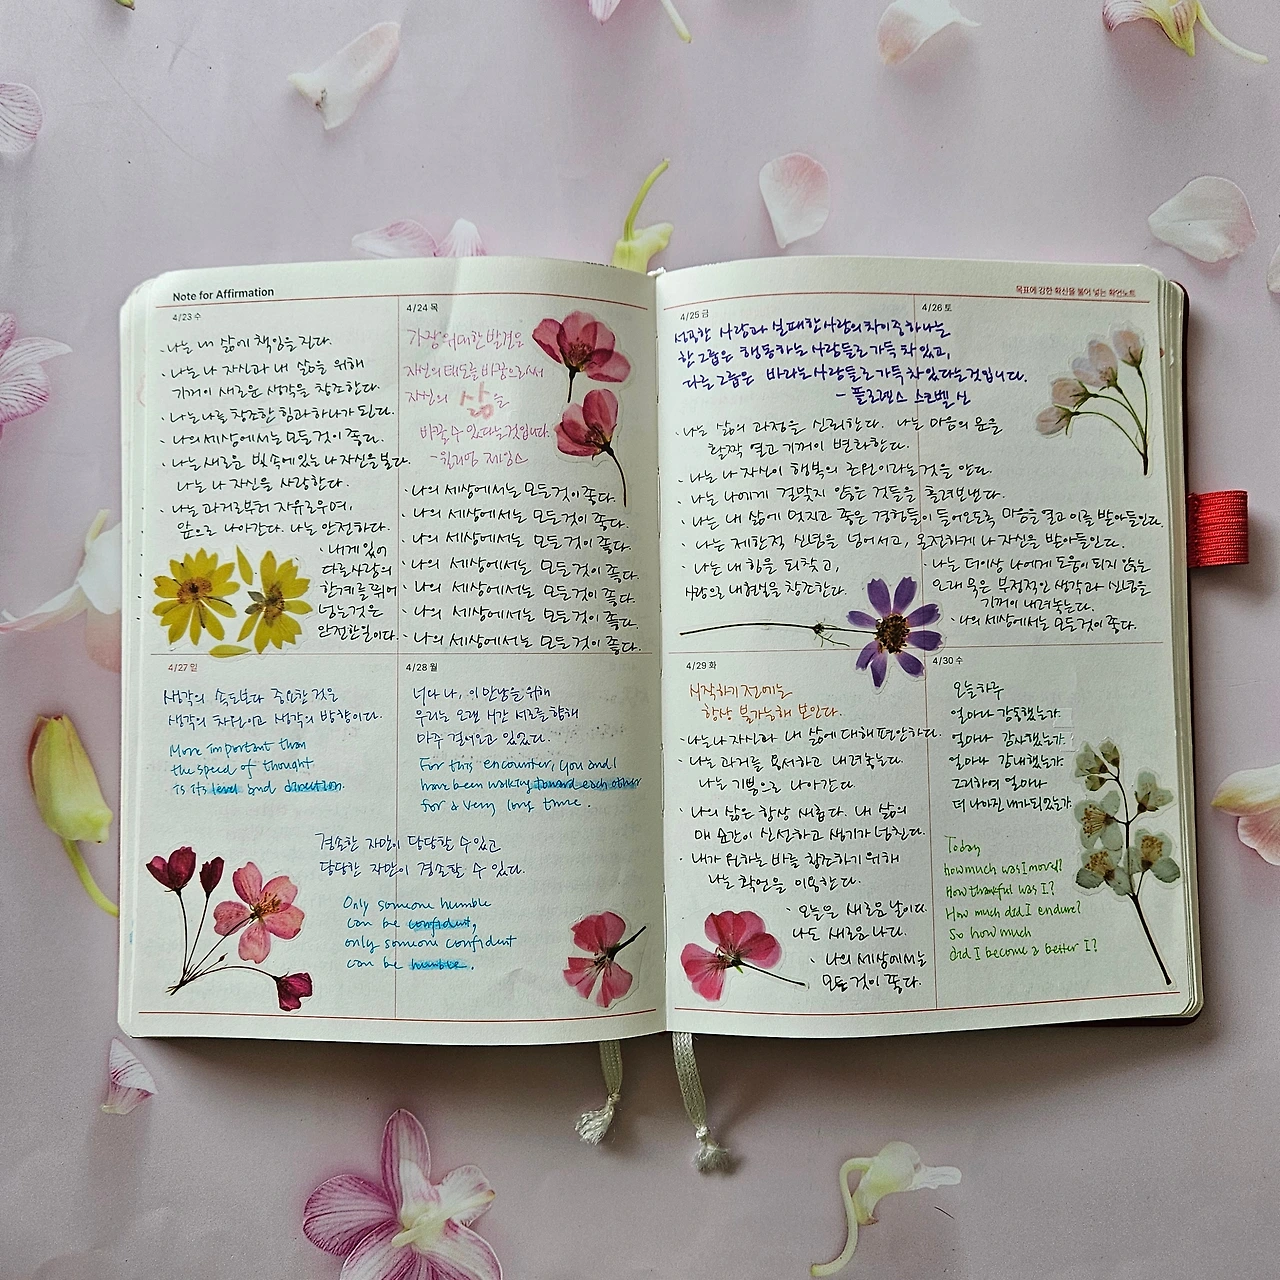 Note for Affirmation
목표에 강한 확신을 불어 넣는 확언노트
4/23 수
· 나는 내 삶에 책임을 진다.
· 나는 나 자신과 내 삶을 위해
기꺼이 새로운 생각을 창조한다.
· 나는 나를 창조한 힘과 하나가 된다.
· 나의 세상에서는 모든 것이 좋다.
· 나는 새로운 빛 속에 있는 나 자신을 본다.
나는 나 자신을 사랑한다.
· 나는 과거로부터 자유로우며,
앞으로 나아간다. 나는 안전하다.
· 내게 있어
다른 사람의
한계를 뛰어
넘는 것은
안전한 일이다.
4/24 목
가장 위대한 발견은
자신의 태도를 바꿈으로써
자신의 삶을
바꿀 수 있다는 것입니다.
- 윌리엄 제임스
· 나의 세상에서는 모든 것이 좋다.
· 나의 세상에서는 모든 것이 좋다.
· 나의 세상에서는 모든 것이 좋다.
· 나의 세상에서는 모든 것이 좋다.
· 나의 세상에서는 모든 것이 좋다.
· 나의 세상에서는 모든 것이 좋다.
· 나의 세상에서는 모든 것이 좋다.
4/25 금
4/26 토
성공한 사람과 실패한 사람의 차이 중 하나는
한 그룹은 행동하는 사람들로 가득 차 있고,
다른 그룹은 바라는 사람들로 가득 차 있다는 것입니다.
- 플로렌스 스코벨 신
· 나는 삶의 과정을 신뢰한다. 나는 마음의 문을
활짝 열고 기꺼이 변화한다.
· 나는 나 자신이 행복의 근원이라는 것을 안다.
· 나는 나에게 걸맞지 않은 것들을 흘려보낸다.
· 나는 내 삶에 멋지고 좋은 경험들이 들어오도록 마음을 열고 이를 받아들인다.
· 나는 제한적 신념을 넘어서고, 온전하게 나 자신을 받아들인다.
· 나는 내 힘을 되찾고,
사랑으로 내 현실을 창조한다.
· 나는 더 이상 나에게 도움이 되지 않는
오래 묵은 부정적인 생각과 신념을
기꺼이 내려놓는다.
· 나의 세상에서는 모든 것이 좋다.
4/27 일
생각의 속도보다 중요한 것은
생각의 차원이고 생각의 방향이다.
More important than
the speed of thought
is its level and direction.
4/28 월
너와 나, 이 만남을 위해
우리는 오랜 시간 서로를 향해
마주 걸어오고 있었다.
For this encounter, you and I
have been walking toward each other
for a very long time.
겸손한 자만이 당당할 수 있고
당당한 자만이 겸손할 수 있다.
Only someone humble
can be confident,
only someone confident
can be humble.
4/29 화
시작하기 전에는
항상 불가능해 보인다.
· 나는 나 자신과 내 삶에 대해 편안하다.
· 나는 과거를 용서하고 내려놓는다.
나는 기쁨으로 나아간다.
· 나의 삶은 항상 새롭다. 내 삶의
매 순간이 신선하고 생기가 넘친다.
· 내가 원하는 바를 창조하기 위해
나는 확언을 이용한다.
· 오늘은 새로운 날이다.
나는 새로운 나다.
· 나의 세상에서는
모든 것이 좋다.
4/30 수
오늘 하루
얼마나 감동했는가.
얼마나 감사했는가.
얼마나 감내했는가.
그리하여 얼마나
더 나아진 내가 되었는가.
Today,
how much was I moved?
How thankful was I?
How much did I endure?
So how much
did I become a better I?